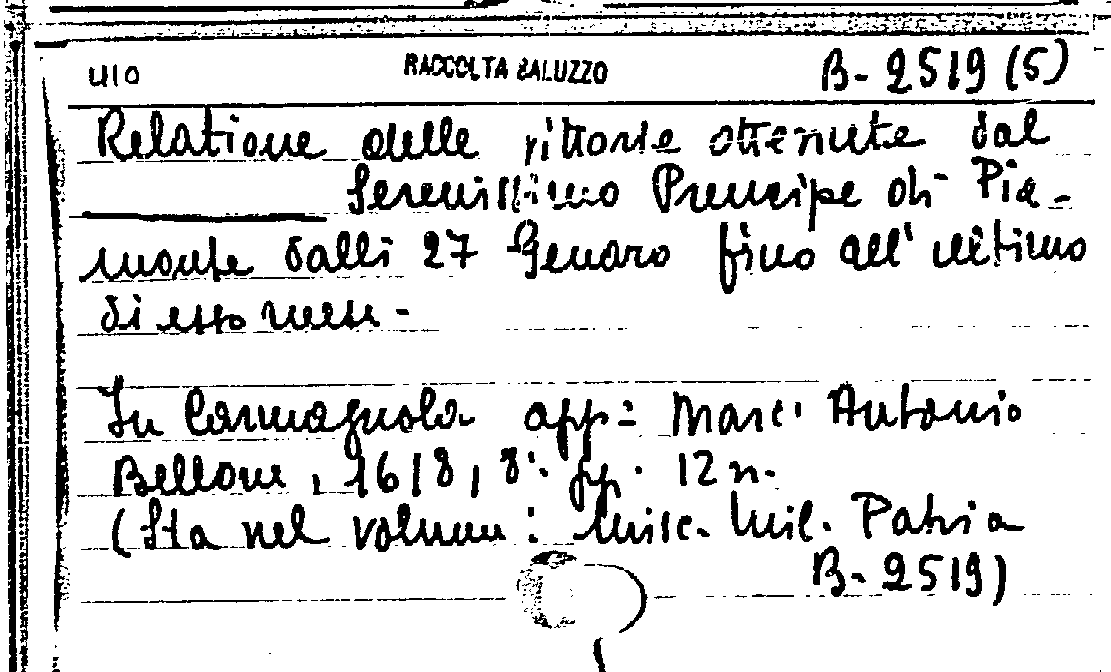 U10 RACCOLTA SALUZZO B-2519 (5)
Relatione delle vittorie ottenute dal
Serenissimo Prencipe di Pia-
monte dalli 27 Genaro fino all'ultimo
di esso mese.
In Carmagnola app: Marc' Antonio
Bellone, 1618, 8º. pp. 12 n.
(Sta nel volume: Misc. Mil. Patria
B-2519)